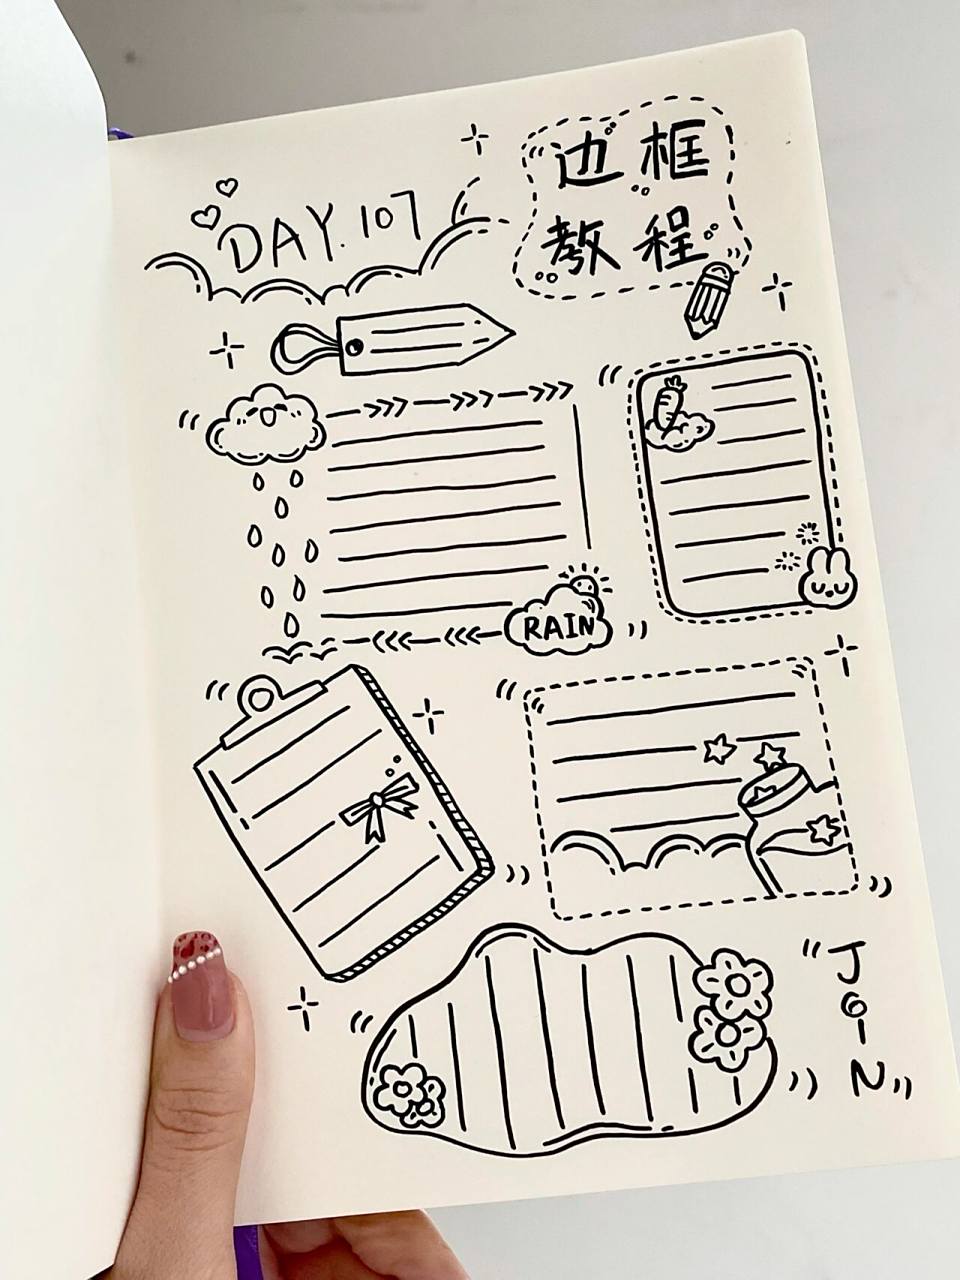 DAY.107
边框
教程
RAIN
JOIN